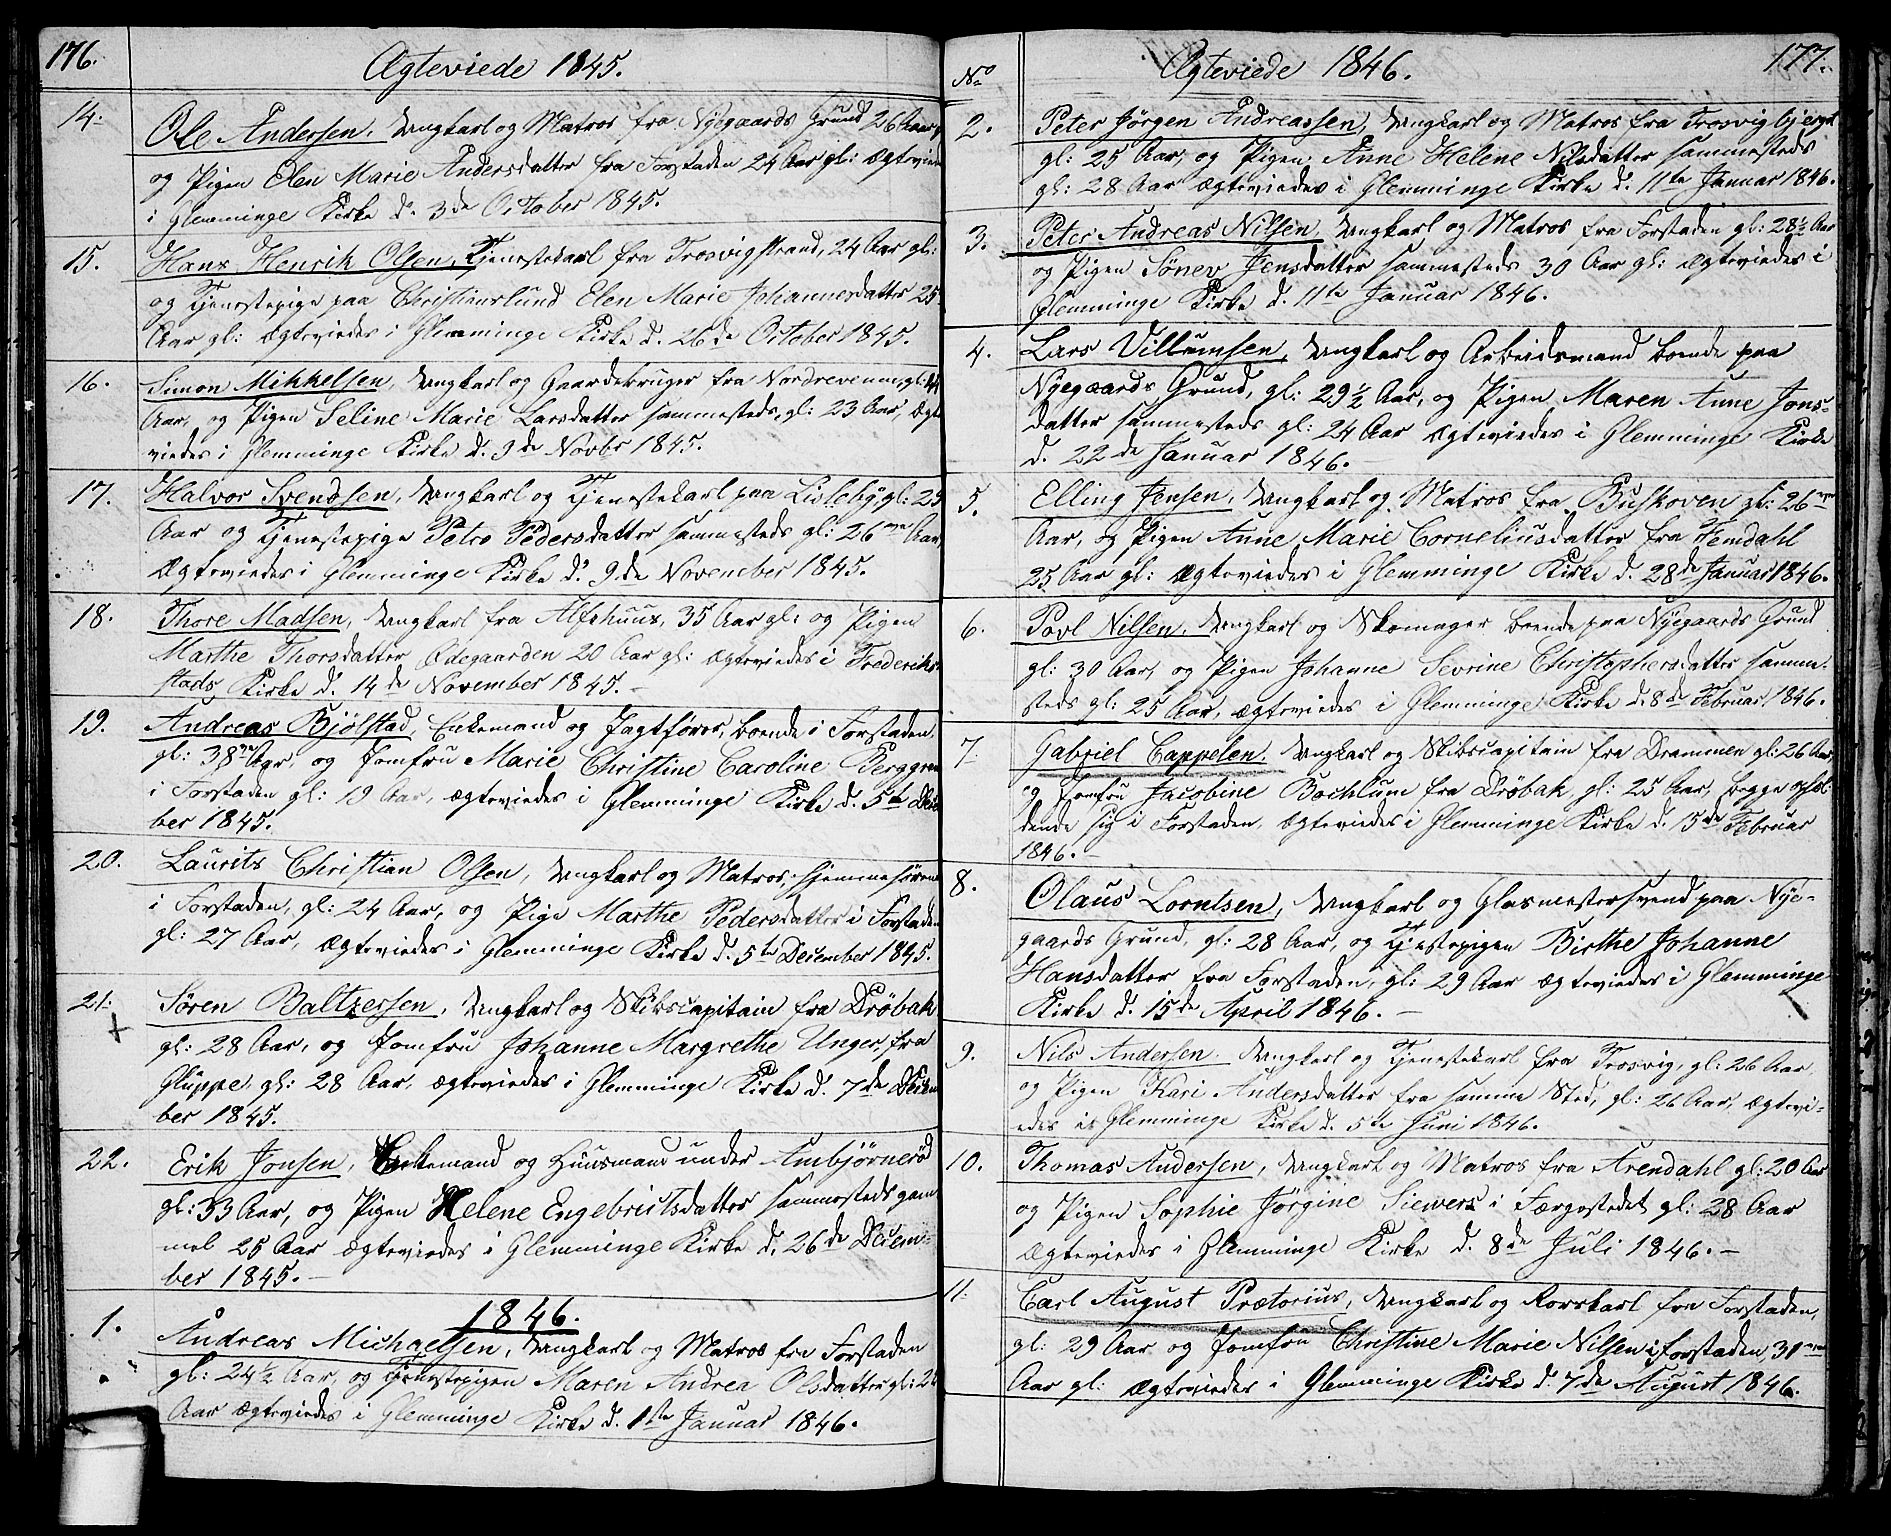 176.
Ægteviede 1845.
14.
Ole Andersen, Ungkarl og Matros fra Nyegaards Grund 26 Aar
og Pigen Elen Marie Andersdatter fra Forstaden 24 Aar gl: Ægtevied
i Glemminge Kirke d. 3de October 1845.
15.
Hans Henrik Olsen, Tjenestekarl fra Trosvigstrand, 24 Aar gl:
og Tjenestepige paa Christianslund Elen Marie Johannesdatter 25
Aar gl: ægteviedes i Glemminge Kirke d. 26de October 1845.
16.
Simon Mikkelsen, Ungkarl og Gaardbruger fra Nordreveum, gl: 44
Aar, og Pigen Seline Marie Larsdatter sammesteds, gl: 23 Aar, ægte
viedes i Glemminge Kirke d. 9de Novbr 1845.
17.
Halvor Svendsen, Ungkarl og Tjenestekarl paa Lisleby, gl: 25
Aar og Tjenestepige Petro Pedersdatter sammesteds gl: 26 Aar,
Ægteviedes i Glemminge Kirke d. 9de November 1845.
18.
Thore Madsen, Ungkarl fra Alshuus, 35 Aar gl: og Pigen
Marthe Thorsdatter Ødegaarden 20 Aar gl: ægteviedes i Frederik-
stads Kirke d. 14de November 1845.
19.
Andreas Bjølstad, Enkemand og Jagtfører, boende i Forstaden,
gl: 38 Aar, og Jomfru Marie Christine Caroline Berggren
i Forstaden gl: 19 Aar, ægteviedes i Glemminge Kirke d. 5te Decem
ber 1845.
20.
Laurits Christian Olsen, Ungkarl og Matros, hjemmehørende
i Forstaden, gl: 24 Aar, og Pige Marthe Pedersdatter i Forstaden
gl: 27 Aar, ægteviedes i Glemminge Kirke d. 5te December 1845.
21.
Søren Baltzersen, Ungkarl og Skibscapitain fra Drøbak
gl: 28 Aar, og Jomfru Johanne Margrethe Unger, fra
Gluppe gl: 28 Aar, ægteviedes i Glemminge Kirke d. 7de Decem
ber 1845.
22.
Erik Jonsen, Enkemand og Huusmand under Ambjørnerød
gl: 33 Aar, og Pigen Helene Engebretsdatter sammesteds gam
mel 25 Aar ægteviedes i Glemminge Kirke d. 26de Decem-
ber 1845.
1846.
1.
Andreas Michaelsen, Ungkarl og Matros fra Forstaden
gl: 24½ Aar, og Tjenestepigen Maren Andrea Olsdatter gl: 26
Aar ægteviedes i Glemminge Kirke d. 1ste Januar 1846.
No
Ægteviede 1846.
177.
2.
Peter Jørgen Andreassen, Ungkarl og Matros fra Trosvigbjerget
gl: 25 Aar, og Pigen Anne Helene Nilsdatter sammesteds
gl: 28 Aar ægteviedes i Glemminge Kirke d. 11te Januar 1846.
3.
Peter Andreas Nilsen, Ungkarl og Matros fra Forstaden gl: 28½ Aar
og Pigen Sønev Jensdatter sammesteds 30 Aar gl: ægteviedes i
Glemminge Kirke d. 11te Januar 1846.
4.
Lars Villumsen, Ungkarl og Arbeidsmand boende paa
Nyegaards Grund, gl: 29½ Aar, og Pigen Maren Anne Jons-
datter sammesteds gl: 24 Aar ægteviedes i Glemminge Kirke
d. 22de Januar 1846.
5.
Elling Jensen, Ungkarl og Matros fra Buskoven gl: 26
Aar, og Pigen Anne Marie Corneliusdatter fra Femdahl
25 Aar gl: ægteviedes i Glemminge Kirke d. 28de Januar 1846.
6.
Povl Nilsen, Ungkarl og Skomager boende paa Nyegaards Grund
gl: 30 Aar, og Pigen Johanne Sevrine Christophersdatter samme-
steds gl: 25 Aar, ægteviedes i Glemminge Kirke d. 8de Februar 1846.
7
Gabriel Cappelen, Ungkarl og Skibscapitain fra Drammen gl: 26 Aar,
og Jomfru Jacobine Bochlum fra Drøbak, gl: 25 Aar, begge ophol
dende sig i Forstaden, ægteviedes i Glemminge Kirke d. 15de Februar
1846.
8.
Olaus Lorntsen, Ungkarl og Glasmestersvend paa Nye-
gaards Grund, gl: 28 Aar, og Tjenestepigen Birthe Johanne
Hansdatter fra Forstaden, gl: 29 Aar ægteviedes i Glemminge
Kirke d. 15de April 1846.
9.
Nils Andersen Ungkarl og Tjenestekarl fra Trosvig, gl: 26 Aar,
og Pigen Kari Andersdatter fra samme Sted, gl: 26 Aar, ægtevi-
edes i Glemminge Kirke d. 5te Juni 1846.
10.
Thomas Andersen, Ungkarl og Matros fra Arendahl gl: 20 Aar
og Pigen Sophie Jørgine Siewers i Færgestedet gl: 28 Aar
ægteviedes i Glemminge Kirke d. 8de Juli 1846.
11.
Carl August Prætorius, Ungkarl og Rorskarl fra Forstaden,
gl: 29 Aar og Jomfru Christine Marie Nilsen i Forstaden, 31
Aar gl: ægteviedes i Glemminge Kirke d. 7de August 1846.